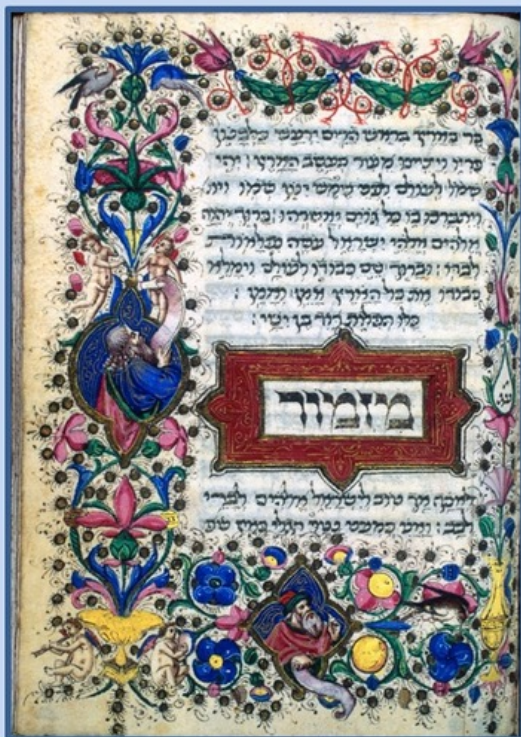 בר בארץ בראש הרים ירעש כלבנון
פריו ויציצו מעיר כעשב הארץ : יהי
שמו לעולם לפני שמש ינון שמו וית
ויתברכו בו כל גוים יאשרוהו : ברוך יהוה
אלהים אלהי ישראל עשה נפלאות
לבדו : וברוך שם כבודו לעולם וימלא
כבודו את כל הארץ אמן ואמן :
כלו תפלות דוד בן ישי :
מזמור
לאסף אך טוב לישראל אלהים לברי
לבב : ואני כמעט נטיו רגלי כאין